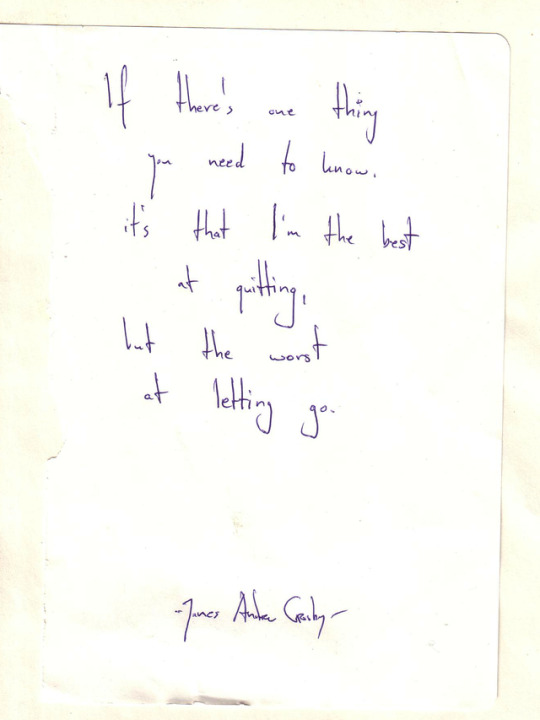 If there's one thing
you need to know.
it's that I'm the best
at quitting,
but the worst
at letting go.
-James Andrew Crosby-